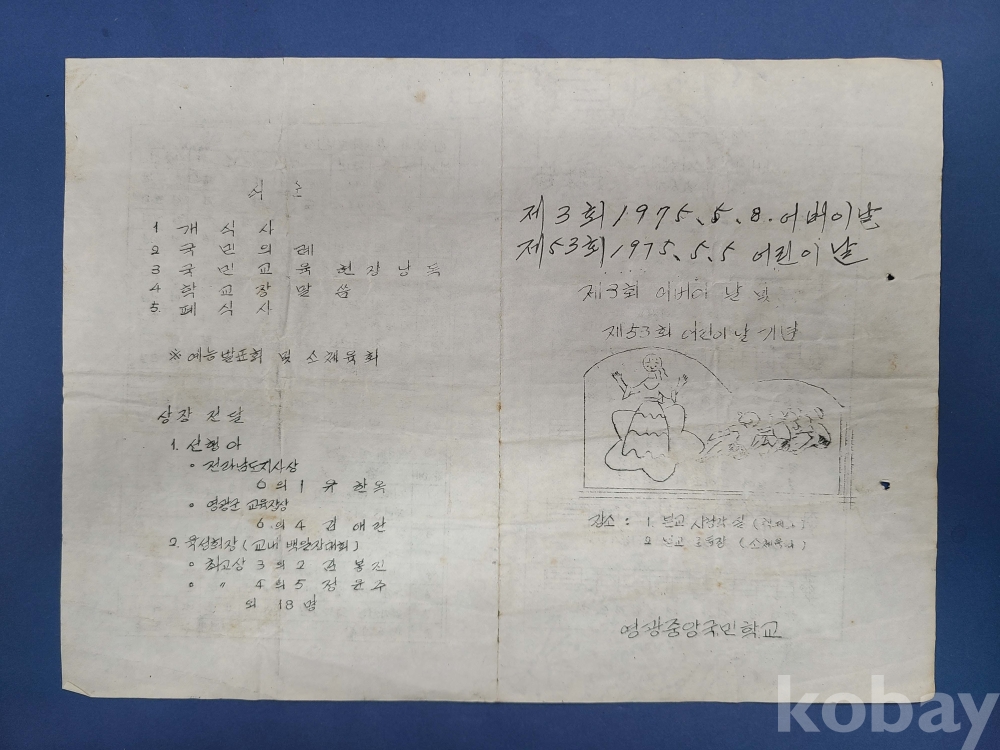 식 순
1 개 식 사
2 국 민 의 례
3 국 민 교 육 헌 장 낭 독
4 학 교 장 말 씀
5. 폐 식 사
※ 예능발표회 및 소체육회
상장 전달
1. 선행아
○ 전라남도지사상
6 의 1 유 한 옥
○ 영광군 교육장상
6 의 4 김 애 란
2. 육성회장 (교내 백일장대회)
○ 최고상 3 의 2 김 봉 진
○ 〃 4 의 5 정 균 주
외 18 명
제3회 1975. 5. 8. 어버이날
제53회 1975. 5. 5 어린이 날
제3회 어버이 날 및
제53회 어린이 날 기념
장소 : 1. 본교
2 본교
영광중앙국민학교
kobay